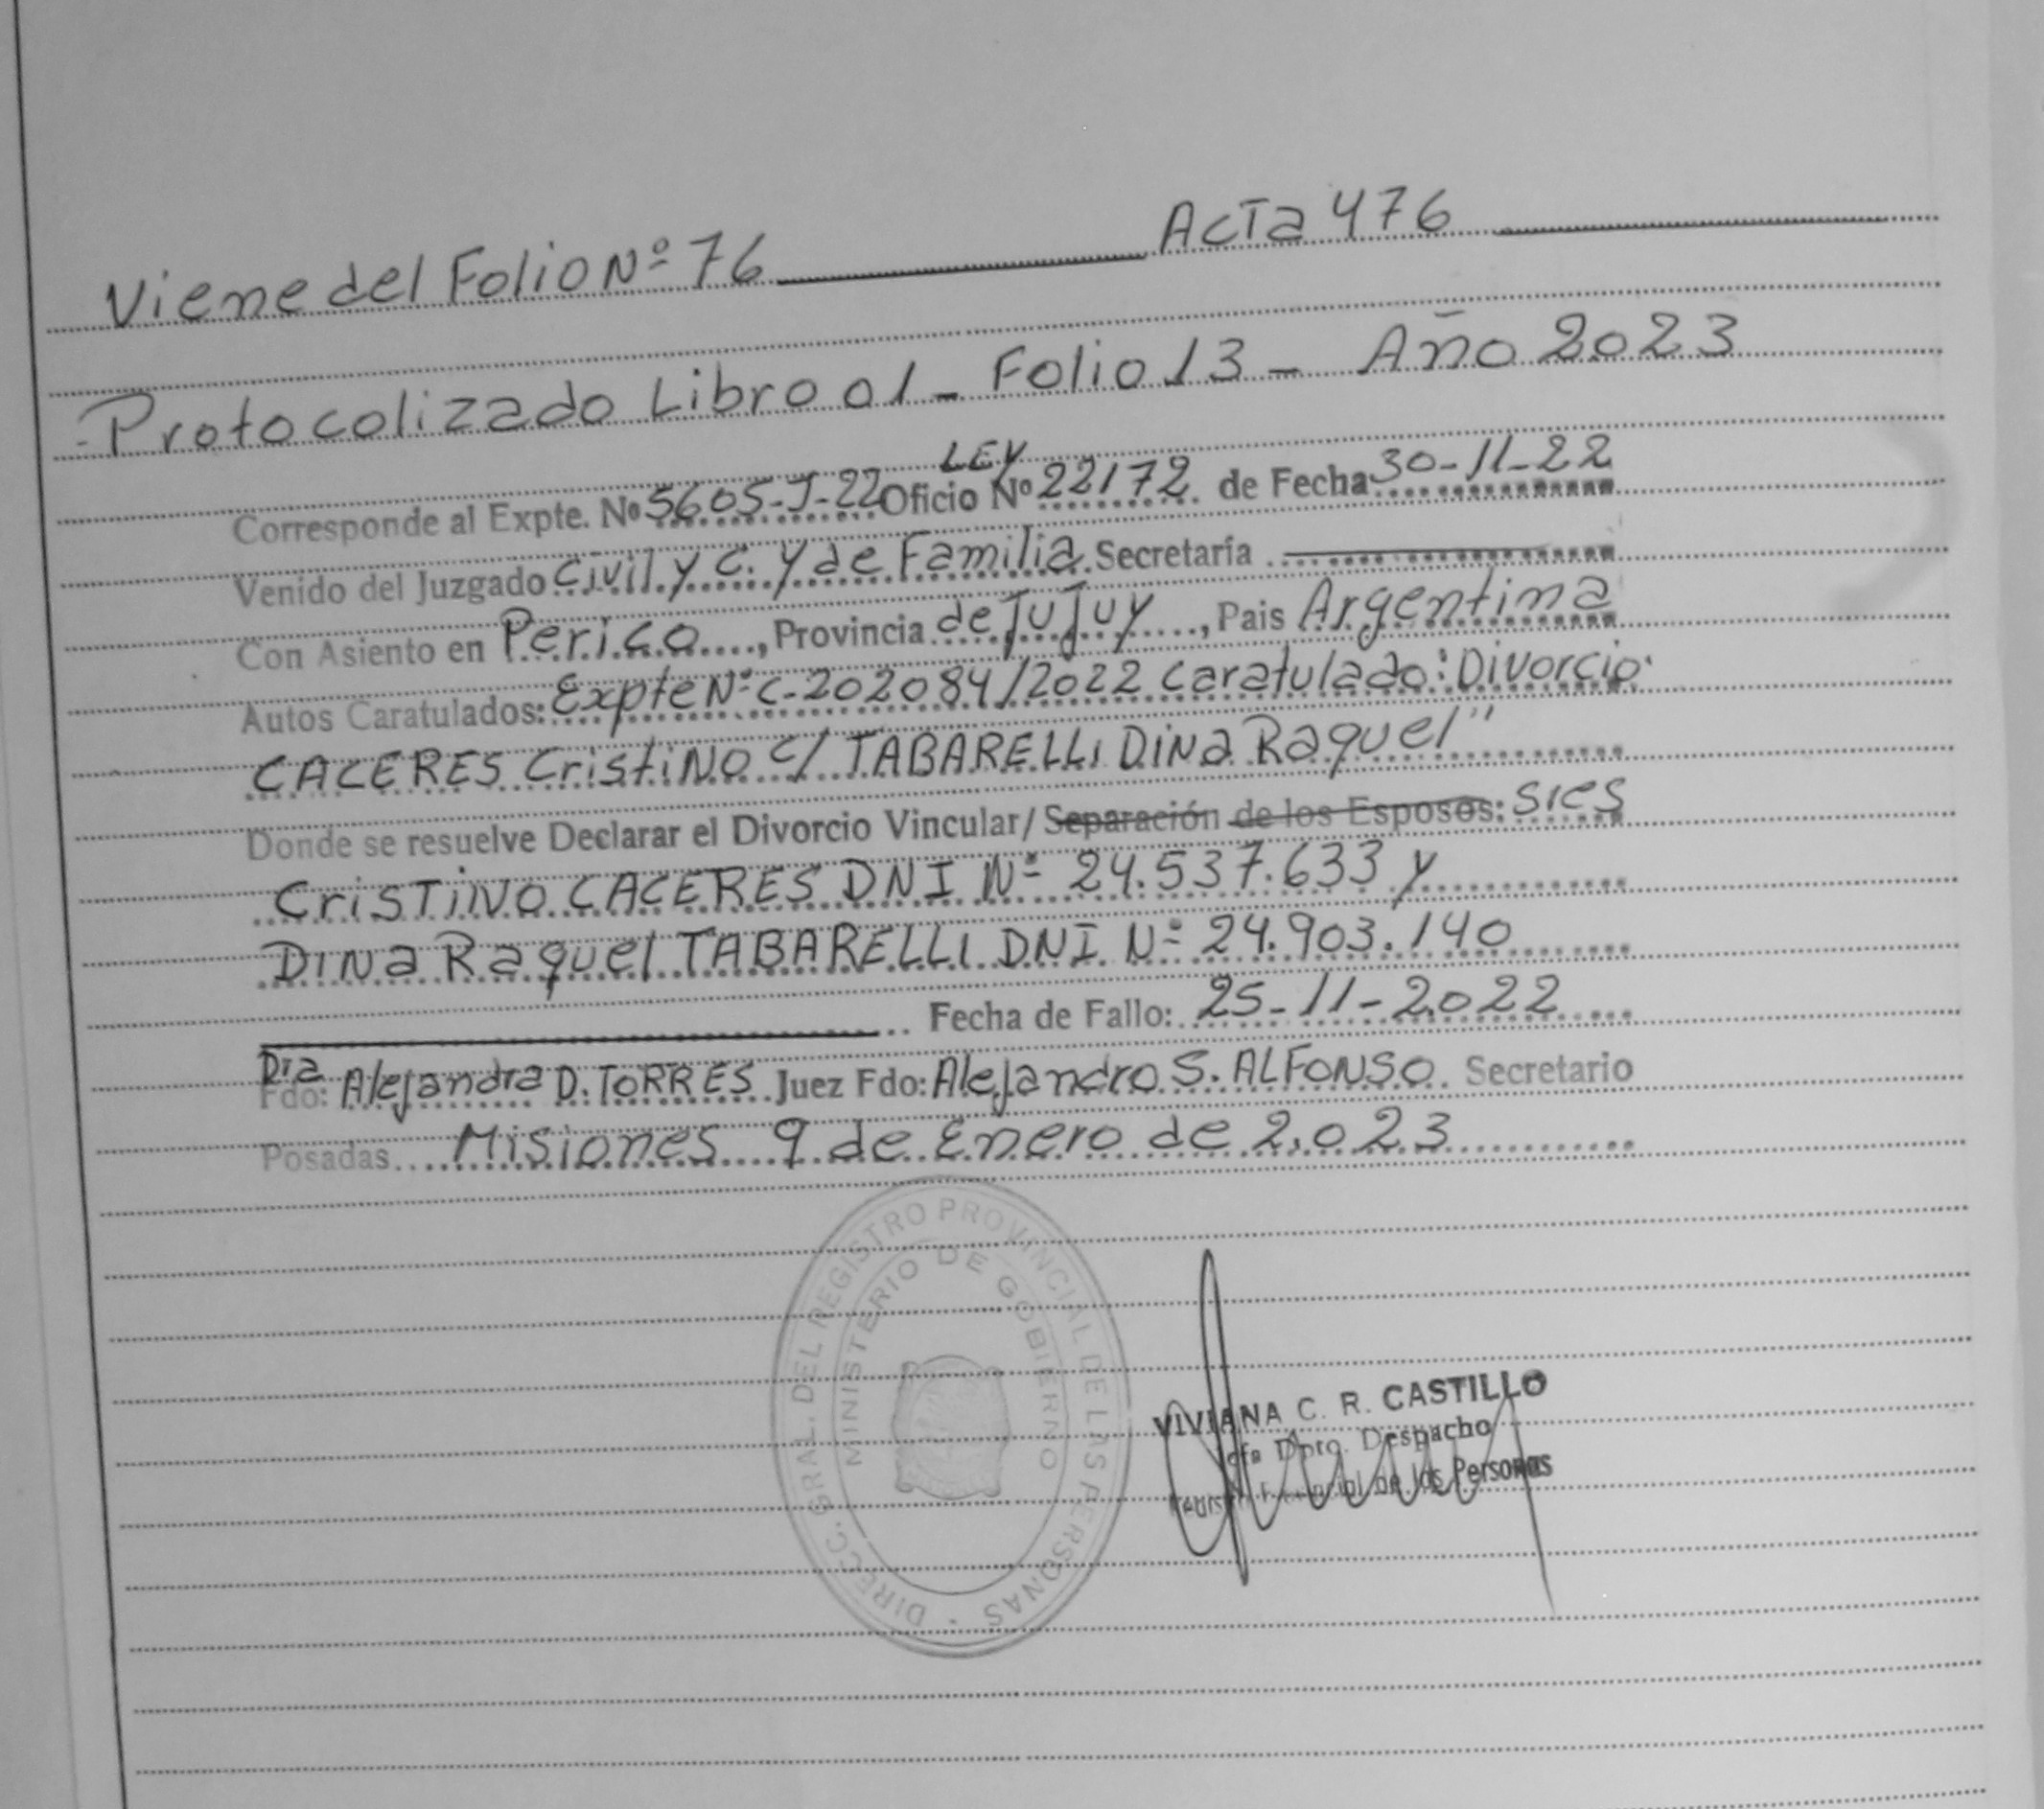 Viene del Folio Nº 76 Acta 476
Protocolizado Libro 01 - Folio 13 - Año 2023
LEY
Corresponde al Expte. Nº 5605-J-22 Oficio Nº 22172 de Fecha 30-11-22
Venido del Juzgado Civil y C. y de Familia Secretaría
Con Asiento en Perico, Provincia de Jujuy, Pais Argentina
Autos Caratulados: Expte Nº C-202084/2022 caratulado: Divorcio:
CACERES Cristino c/ TABARELLI Dina Raquel"
Donde se resuelve Declarar el Divorcio Vincular/ Separación de los Esposos: Sres
Cristino CACERES DNI Nº 24.537.633 y
Dina Raquel TABARELLI DNI Nº 24.903.140
Fecha de Fallo: 25-11-2022
Dra
Fdo: Alejandra D. TORRES Juez Fdo: Alejandro S. ALFONSO Secretario
Posadas Misiones 9 de Enero de 2.023
DIRECC. GRAL. DEL REGISTRO PROVINCIAL DE LAS PERSONAS
MINISTERIO DE GOBIERNO
VIVIANA C. R. CASTILLO
Jefa Dpto. Despacho
de las Personas